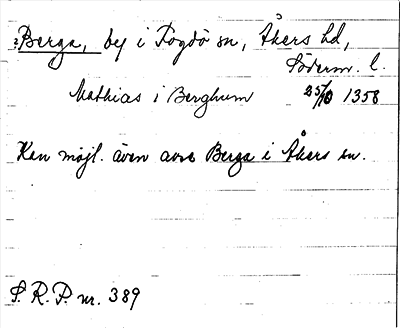 ? Berga, by i Fogdö sn, Åkers hd,
Söderm. l.
Mathias i Berghum 25/10 1358
Kan möjl. även avse Berga i Åkers sn.
S. R. P. nr. 389